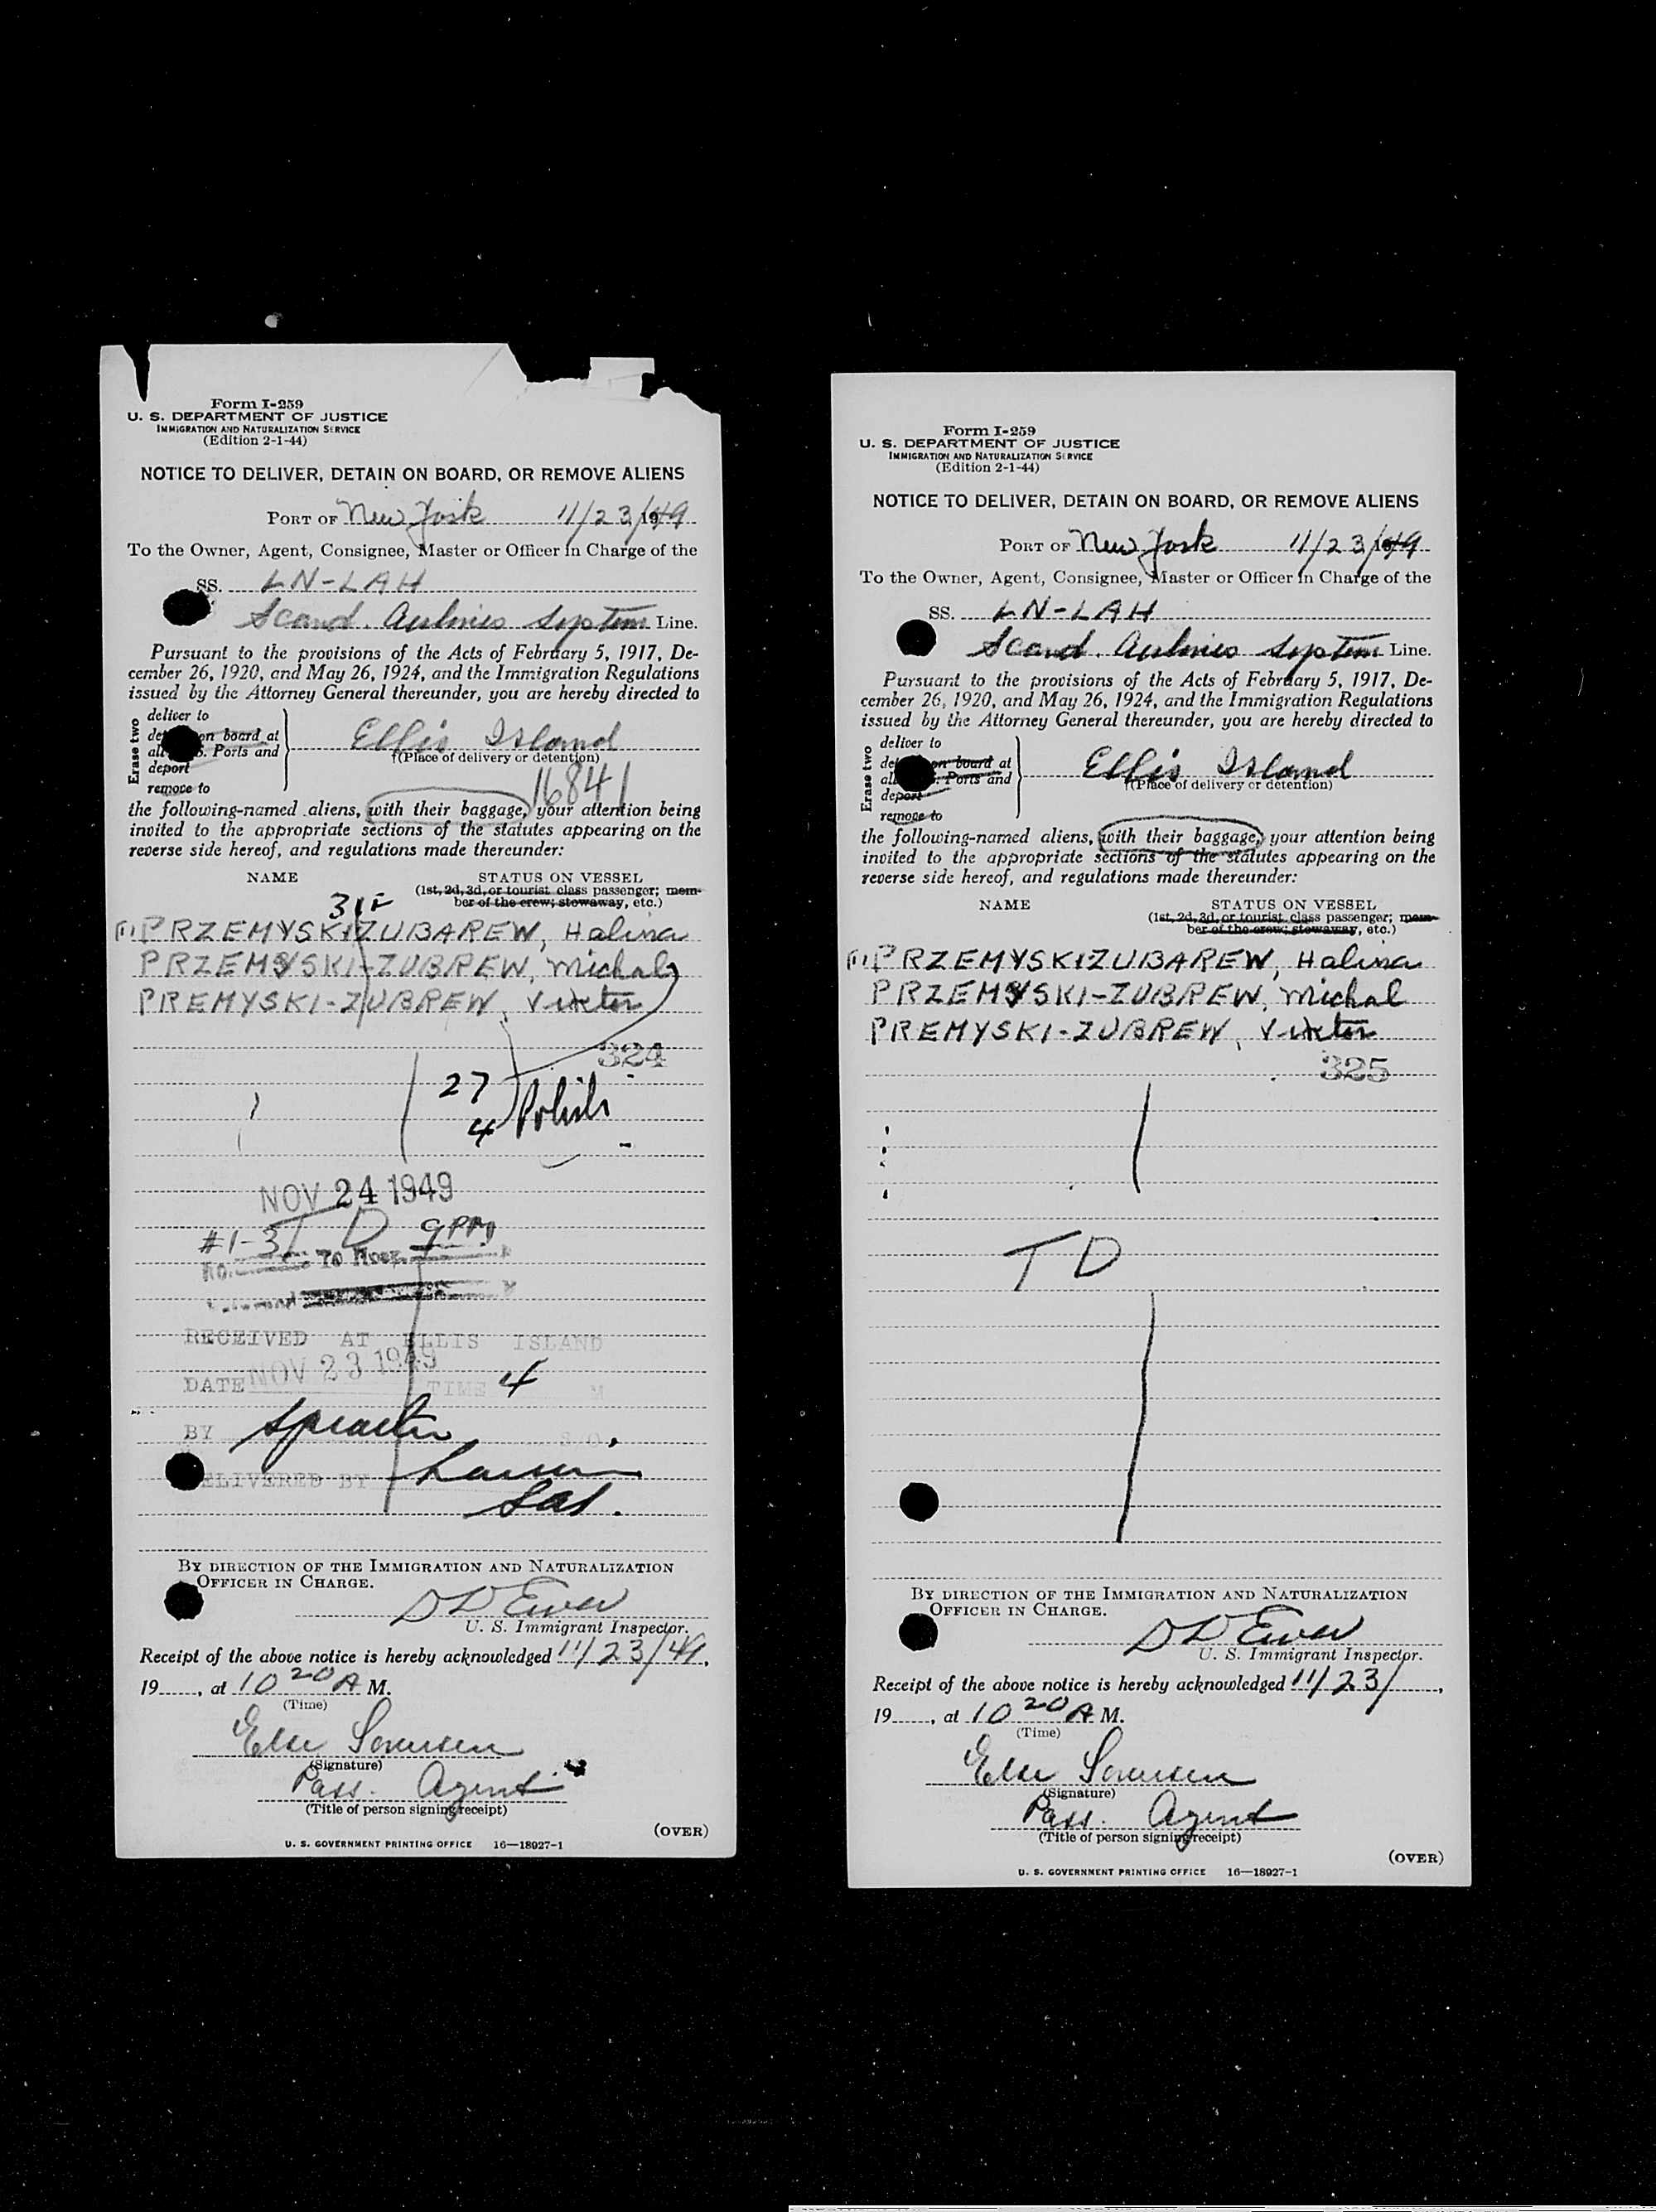 Form I-259
U. S. DEPARTMENT OF JUSTICE
IMMIGRATION AND NATURALIZATION SERVICE
(Edition 2-1-44)
NOTICE TO DELIVER, DETAIN ON BOARD, OR REMOVE ALIENS
PORT OF New York 11/23/1949
To the Owner, Agent, Consignee, Master or Officer in Charge of the
SS. LN-LAH
Scand. Airlines System Line.
Pursuant to the provisions of the Acts of February 5, 1917, De-
cember 26, 1920, and May 26, 1924, and the Immigration Regulations
issued by the Attorney General thereunder, you are hereby directed to
Erase two
deliver to
on board at
Ports and
deport
remove to
Ellis Island
†(Place of delivery or detention)
16841
the following-named aliens, with their baggage, your attention being
invited to the appropriate sections of the statutes appearing on the
reverse side hereof, and regulations made thereunder:
NAME STATUS ON VESSEL
(1st, 2d, 3d, or tourist class passenger; mem-
ber of the crew; stowaway, etc.)
(1) PRZEMYSKI ZUBAREW, Halina
PRZEMYSKI-ZUBREW, Michal
PREMYSKI-ZUBREW, Viktor
324
27
4 Polish
NOV 24 1949
#1-3 T D 9 PM
No. To
RECEIVED AT ELLIS ISLAND
NOV 23 1949
DATE TIME 4 M
BY
DELIVERED BY
SAS.
BY DIRECTION OF THE IMMIGRATION AND NATURALIZATION
OFFICER IN CHARGE.
U. S. Immigrant Inspector.
Receipt of the above notice is hereby acknowledged 11/23/49,
19, at 10 20 A M.
(Time)
Else Sorensen
(Signature)
Pass. Agent
(Title of person signing receipt)
(OVER)
U. S. GOVERNMENT PRINTING OFFICE 16—18927-1
Form I-259
U. S. DEPARTMENT OF JUSTICE
IMMIGRATION AND NATURALIZATION SERVICE
(Edition 2-1-44)
NOTICE TO DELIVER, DETAIN ON BOARD, OR REMOVE ALIENS
PORT OF New York 11/23/1949
To the Owner, Agent, Consignee, Master or Officer in Charge of the
SS. LN-LAH
Scand. Airlines System Line.
Pursuant to the provisions of the Acts of February 5, 1917, De-
cember 26, 1920, and May 26, 1924, and the Immigration Regulations
issued by the Attorney General thereunder, you are hereby directed to
Erase two
deliver to
on board at
Ports and
deport
remove to
Ellis Island
†(Place of delivery or detention)
the following-named aliens, with their baggage, your attention being
invited to the appropriate sections of the statutes appearing on the
reverse side hereof, and regulations made thereunder:
NAME STATUS ON VESSEL
(1st, 2d, 3d, or tourist class passenger; mem-
ber of the crew; stowaway, etc.)
(1) PRZEMYSKI ZUBAREW, Halina
PRZEMYSKI-ZUBREW, Michal
PREMYSKI-ZUBREW, Viktor
325
T D
BY DIRECTION OF THE IMMIGRATION AND NATURALIZATION
OFFICER IN CHARGE.
U. S. Immigrant Inspector.
Receipt of the above notice is hereby acknowledged 11/23/,
19, at 10 20 A M.
(Time)
Else Sorensen
(Signature)
Pass. Agent
(Title of person signing receipt)
(OVER)
U. S. GOVERNMENT PRINTING OFFICE 16—18927-1